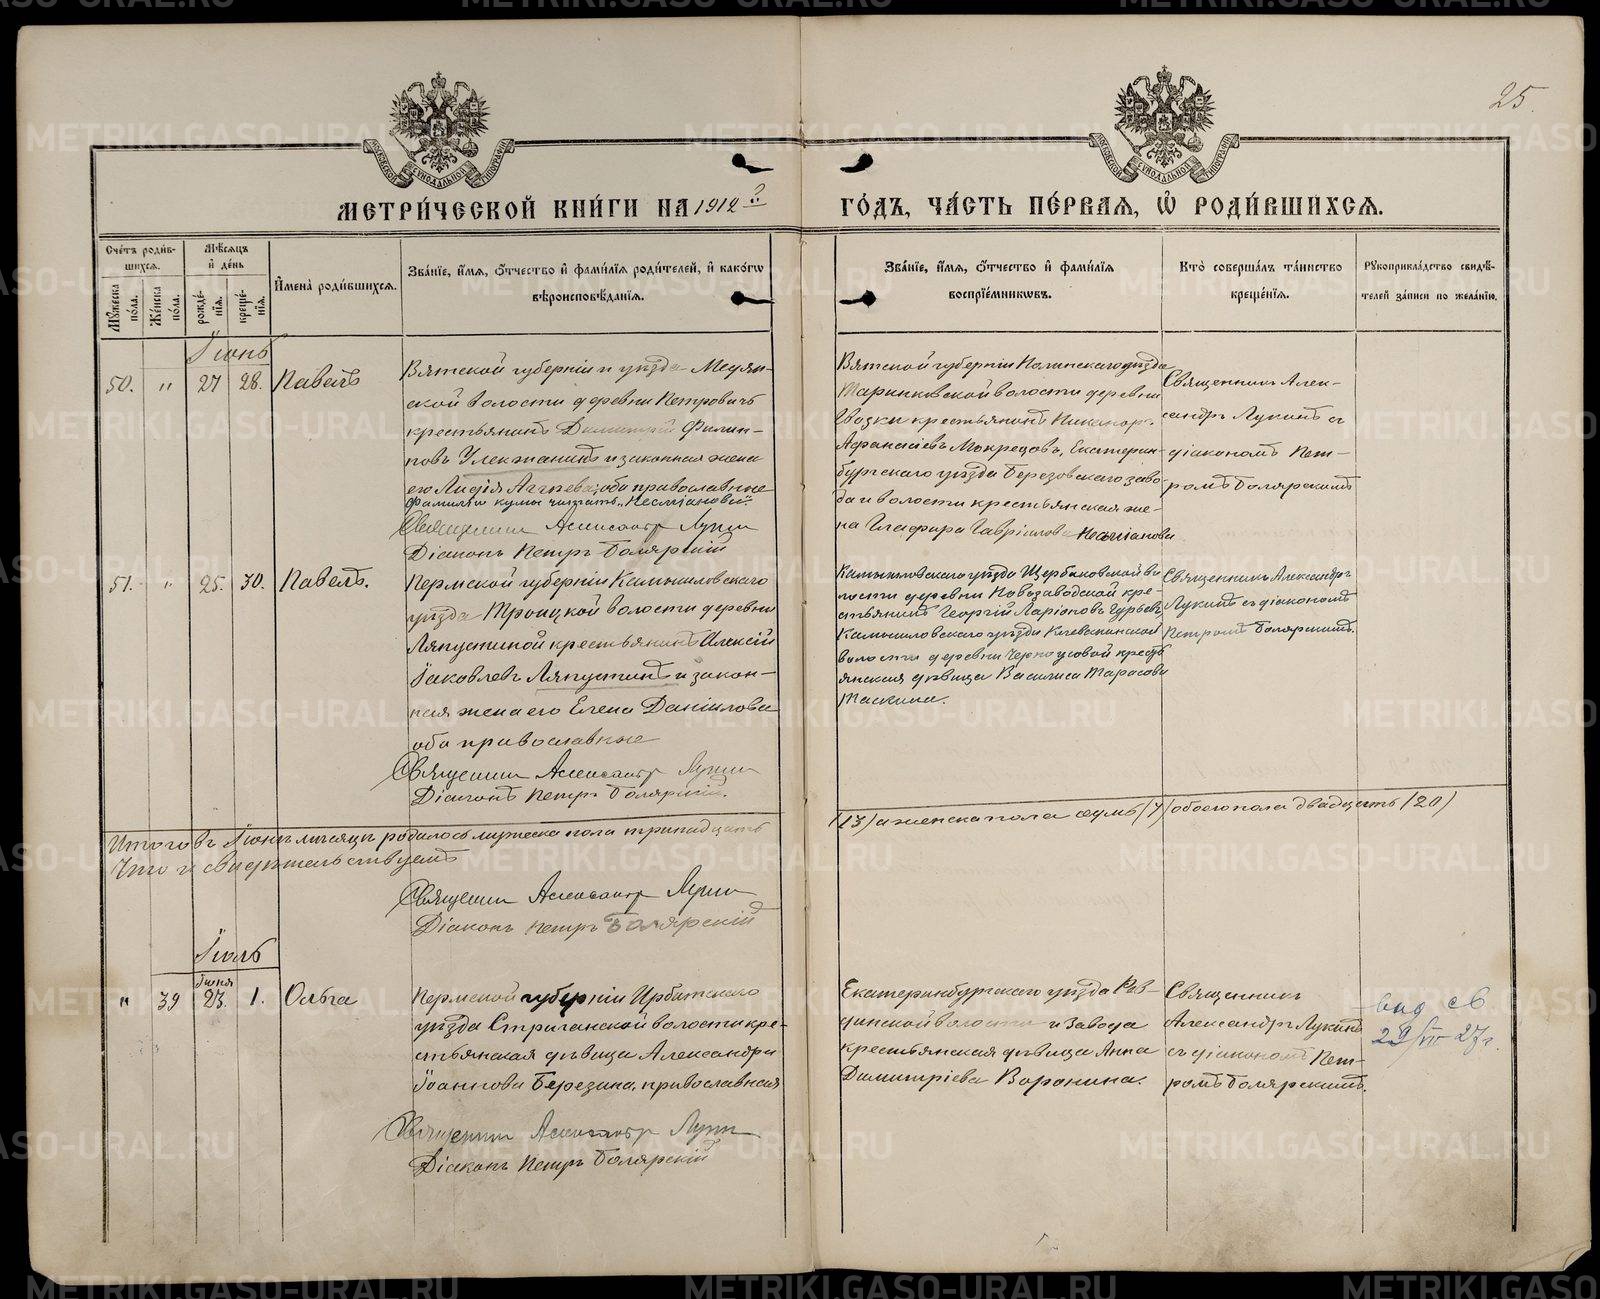 25.
МЕТРИЧЕСКОЙ КНИГИ НА 1912 ГОДЪ, ЧАСТЬ ПЕРВАЯ, Ѡ РОДИВШИХСЯ.
Счетъ родившихся.
Мужеска пола.
Женска пола.
Мѣсяцъ и день
рождения.
крещенія.
Имена родившихся.
Званіе, имя, отчество и фамилія родителей, и какогѡ
вѣроисповѣданія.
Званіе, имя, отчество и фамилія
воспріемникѡвъ.
Кто совершалъ таинство
крещенія.
Рукоприкладство свидѣ-
телей записи по желанію.
Іюнь
50. " 27 28. Павелъ
Вятской губерніи и уѣзда Медян-
ской волости деревни Петровичъ
крестьянинъ Димитрій Филип-
повъ Улекжанинъ и законная жена
его Лидія оба православные
фамилію кумы читать "Несміяновой"
Священникъ Александръ Лукинъ
Діаконъ Петръ Болярскій
Вятской губерніи Нолинскаго уѣзда
волости деревни
Гвозки крестьянинъ Никаноръ
Афанасіевъ Мокрецовъ, Екатерин-
бургскаго уѣзда Березовскаго заво-
да и волости крестьянская же-
на Глафира Гавріилова Несміянова
Священникъ Алек-
сандръ Лукинъ съ
діакономъ Пет-
ромъ Болярскимъ
51. " 25. 30. Павелъ.
Пермской губерніи Камышловскаго
уѣзда Троицкой волости деревни
Ляпустиной крестьянинъ Алексій
Іаковлевъ Ляпустинъ и закон-
ная жена его Елена Даніилова
оба православные
Священникъ Александръ Лукинъ
Діаконъ Петръ Болярскій.
Камышловскаго уѣзда Щербаковской во
лости деревни Новозаводской кре-
стьянинъ Георгій Ларіоновъ Гурьевъ,
Камышловскаго уѣзда Клевакинской
волости деревни Черноусовой кресть
янская дѣвица Василиса Тарасова
Таскина.
Священникъ Александръ
Лукинъ съ діакономъ
Петромъ Болярскимъ.
Итого въ Іюнѣ мѣсяцѣ родилось мужеска пола тринадцать
(13) а женска пола семь (7) обоего пола двадцать (20)
Что и свидѣтельствуемъ
Священникъ Александръ Лукинъ
Діаконъ Петръ Болярскій
Іюль
Іюня
" 39 23. 1. Ольга
Пермской губерніи Ирбитскаго
уѣзда Стриганской волости кре-
стьянская дѣвица Александра
Іоаннова Березина, православная
Священникъ Александръ Лукинъ
Діаконъ Петръ Болярскій
Екатеринбургскаго уѣзда Рев-
динской волости и завода
крестьянская дѣвица Анна
Димитріева Воронина.
Священникъ
Александръ Лукинъ
съ діакономъ Пет-
ромъ Болярскимъ.
METRIKI.GASO-URAL.RU